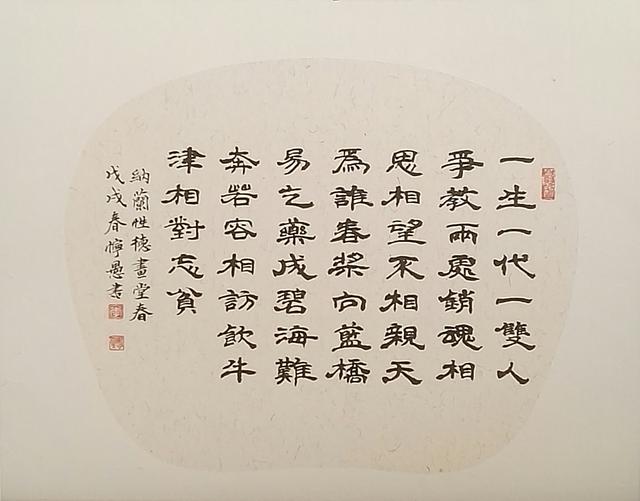 一生一代一雙人
爭教兩處銷魂相
思相望不相親天
爲誰春槳向藍橋
易乞藥成碧海難
奔若容相訪飲牛
津相對忘貧
納蘭性德畫堂春
戊戌春愚书